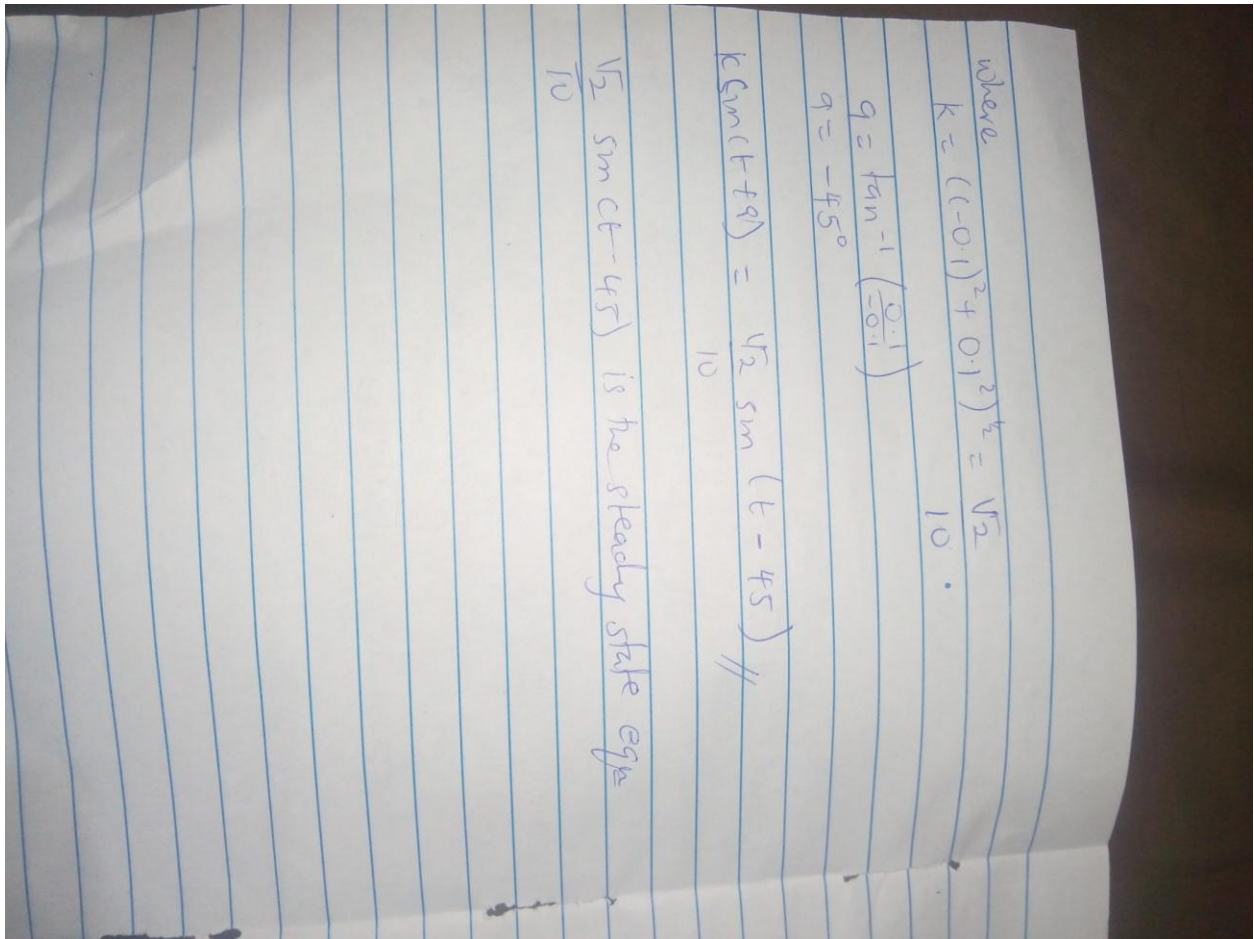 where
k = ((-0.1)² + 0.1²)^½ = √2/10 .
q = tan⁻¹ (0.1/-0.1)
q = -45°
k sin(t + q) = √2/10 sin (t - 45) //
√2/10 sin (t - 45) is the steady state eqn